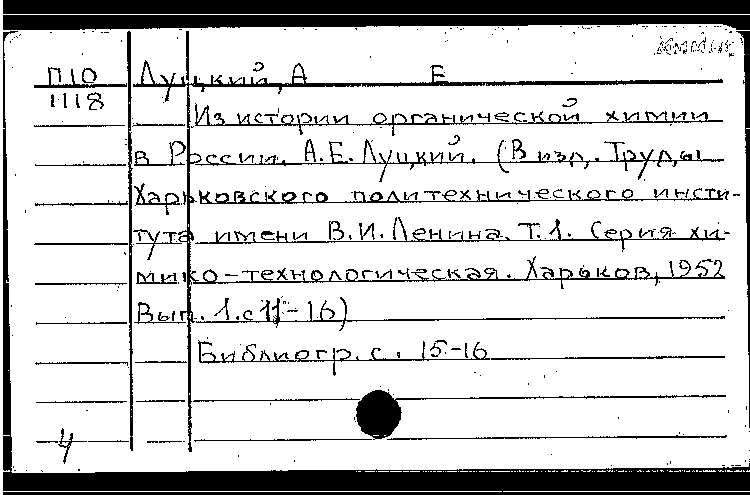 химия
П10 Луцкий, А Е
1118
Из истории органической химии
в России. А.Е. Луцкий. (В изд. Труды
Харьковского политехнического инсти-
тута имени В.И. Ленина. Т.1. Серия хи-
мико-технологическая. Харьков, 1952
Вып. 1. с 11-16)
Библиогр. с. 15-16
4